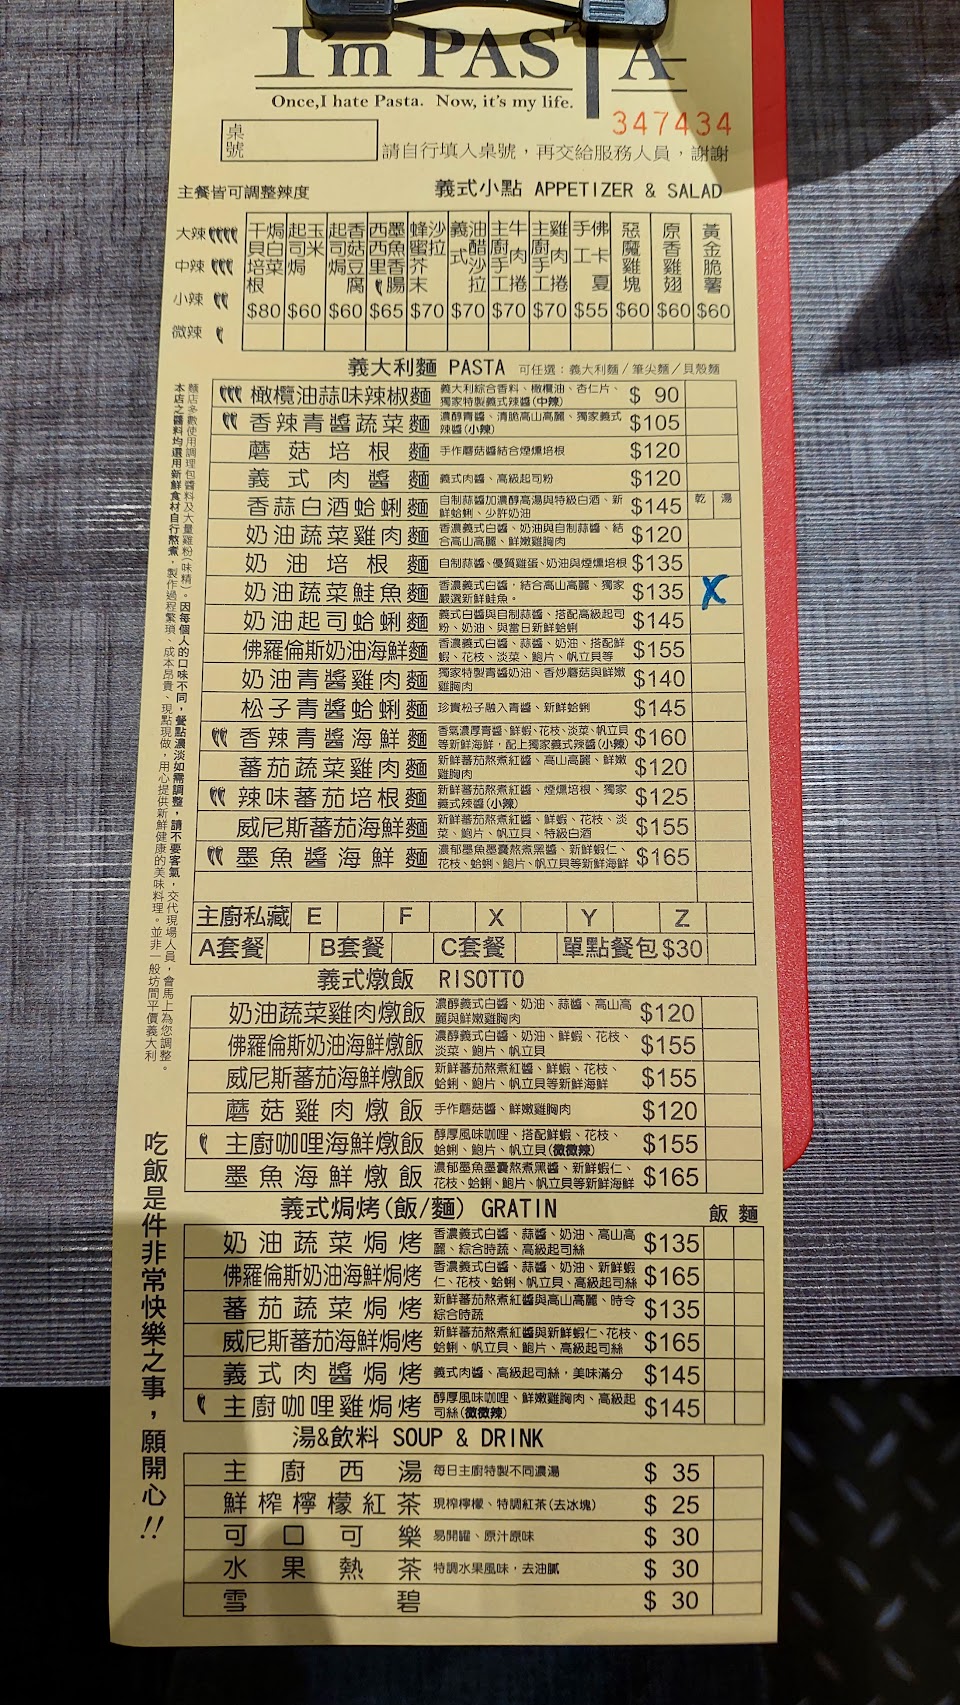 I'm PASTA
Once,I hate Pasta. Now, it's my life.
347434
桌號
請自行填入桌號，再交給服務人員，謝謝
主餐皆可調整辣度
大辣
中辣
小辣
微辣
義式小點 APPETIZER & SALAD
干貝培根焗白菜 $80
起司焗玉米 $60
起司焗香菇豆腐 $60
西西里墨魚香腸 $65
蜂蜜芥末沙拉 $70
義式油醋沙拉 $70
主廚手工牛肉捲 $70
主廚手工雞肉捲 $70
手工佛卡夏 $55
惡魔雞塊 $60
原香雞翅 $60
黃金脆薯 $60
義大利麵 PASTA 可任選：義大利麵／筆尖麵／貝殼麵
橄欖油蒜味辣椒麵 義大利綜合香料、橄欖油、杏仁片、獨家特製義式辣醬(中辣) $ 90
香辣青醬蔬菜麵 濃醇青醬、清脆高山高麗、獨家義式辣醬(小辣) $105
蘑菇培根麵 手作蘑菇醬結合煙燻培根 $120
義式肉醬麵 義式肉醬、高級起司粉 $120
香蒜白酒蛤蜊麵 自制蒜醬加濃醇高湯與特級白酒、新鮮蛤蜊、少許奶油 $145 乾 湯
奶油蔬菜雞肉麵 香濃義式白醬、奶油與自制蒜醬、結合高山高麗、鮮嫩雞胸肉 $120
奶油培根麵 自制蒜醬、優質雞蛋、奶油與煙燻培根 $135
奶油蔬菜鮭魚麵 香濃義式白醬，結合高山高麗、獨家嚴選新鮮鮭魚。 $135 X
奶油起司蛤蜊麵 義式白醬與自制蒜醬、搭配高級起司粉、奶油、與當日新鮮蛤蜊 $145
佛羅倫斯奶油海鮮麵 香濃義式白醬、蒜醬、奶油、搭配鮮蝦、花枝、淡菜、鮑片、帆立貝等 $155
奶油青醬雞肉麵 獨家特製青醬奶油、香炒蘑菇與鮮嫩雞胸肉 $140
松子青醬蛤蜊麵 珍貴松子融入青醬、新鮮蛤蜊 $145
香辣青醬海鮮麵 香氣濃厚青醬、鮮蝦、花枝、淡菜、帆立貝等新鮮海鮮，配上獨家義式辣醬(小辣) $160
蕃茄蔬菜雞肉麵 新鮮蕃茄熬煮紅醬、高山高麗、鮮嫩雞胸肉 $120
辣味蕃茄培根麵 新鮮蕃茄熬煮紅醬、煙燻培根、獨家義式辣醬(小辣) $125
威尼斯蕃茄海鮮麵 新鮮蕃茄熬煮紅醬、鮮蝦、花枝、淡菜、鮑片、帆立貝、特級白酒 $155
墨魚醬海鮮麵 濃郁墨魚墨囊熬煮黑醬、新鮮蝦仁、花枝、蛤蜊、鮑片、帆立貝等新鮮海鮮 $165
主廚私藏 E F X Y Z
A套餐 B套餐 C套餐 單點餐包 $30
義式燉飯 RISOTTO
奶油蔬菜雞肉燉飯 濃醇義式白醬、奶油、蒜醬、高山高麗與鮮嫩雞胸肉 $120
佛羅倫斯奶油海鮮燉飯 濃醇義式白醬、奶油、鮮蝦、花枝、淡菜、鮑片、帆立貝 $155
威尼斯蕃茄海鮮燉飯 新鮮蕃茄熬煮紅醬、鮮蝦、花枝、蛤蜊、鮑片、帆立貝等新鮮海鮮 $155
蘑菇雞肉燉飯 手作蘑菇醬、鮮嫩雞胸肉 $120
主廚咖哩海鮮燉飯 醇厚風味咖哩、搭配鮮蝦、花枝、蛤蜊、鮑片、帆立貝(微微辣) $155
墨魚海鮮燉飯 濃郁墨魚墨囊熬煮黑醬、新鮮蝦仁、花枝、蛤蜊、鮑片、帆立貝等新鮮海鮮 $165
義式焗烤(飯/麵) GRATIN 飯 麵
奶油蔬菜焗烤 香濃義式白醬、蒜醬、奶油、高山高麗、綜合時蔬、高級起司絲 $135
佛羅倫斯奶油海鮮焗烤 香濃義式白醬、蒜醬、奶油、新鮮蝦仁、花枝、蛤蜊、帆立貝、高級起司絲 $165
蕃茄蔬菜焗烤 新鮮蕃茄熬煮紅醬與高山高麗、時令綜合時蔬 $135
威尼斯蕃茄海鮮焗烤 新鮮蕃茄熬煮紅醬與新鮮蝦仁、花枝、蛤蜊、帆立貝、鮑片、高級起司絲 $165
義式肉醬焗烤 義式肉醬、高級起司絲，美味滿分 $145
主廚咖哩雞焗烤 醇厚風味咖哩、鮮嫩雞胸肉、高級起司絲(微微辣) $145
湯&飲料 SOUP & DRINK
主廚西湯 每日主廚特製不同濃湯 $ 35
鮮榨檸檬紅茶 現榨檸檬、特調紅茶(去冰塊) $ 25
可口可樂 易開罐、原汁原味 $ 30
水果熱茶 特調水果風味，去油膩 $ 30
雪碧 $ 30
麵店多數使用調理包醬料及大量雞粉(味精)。因每個人的口味不同，餐點濃淡如需調整，請不要客氣，交代現場人員，會馬上為您調整。
本店之醬料均選用新鮮食材自行熬煮，製作過程繁瑣、成本昂貴、現點現做，用心提供新鮮健康的美味料理。並非一般坊間平價義大利
吃飯是件非常快樂之事，願開心!!